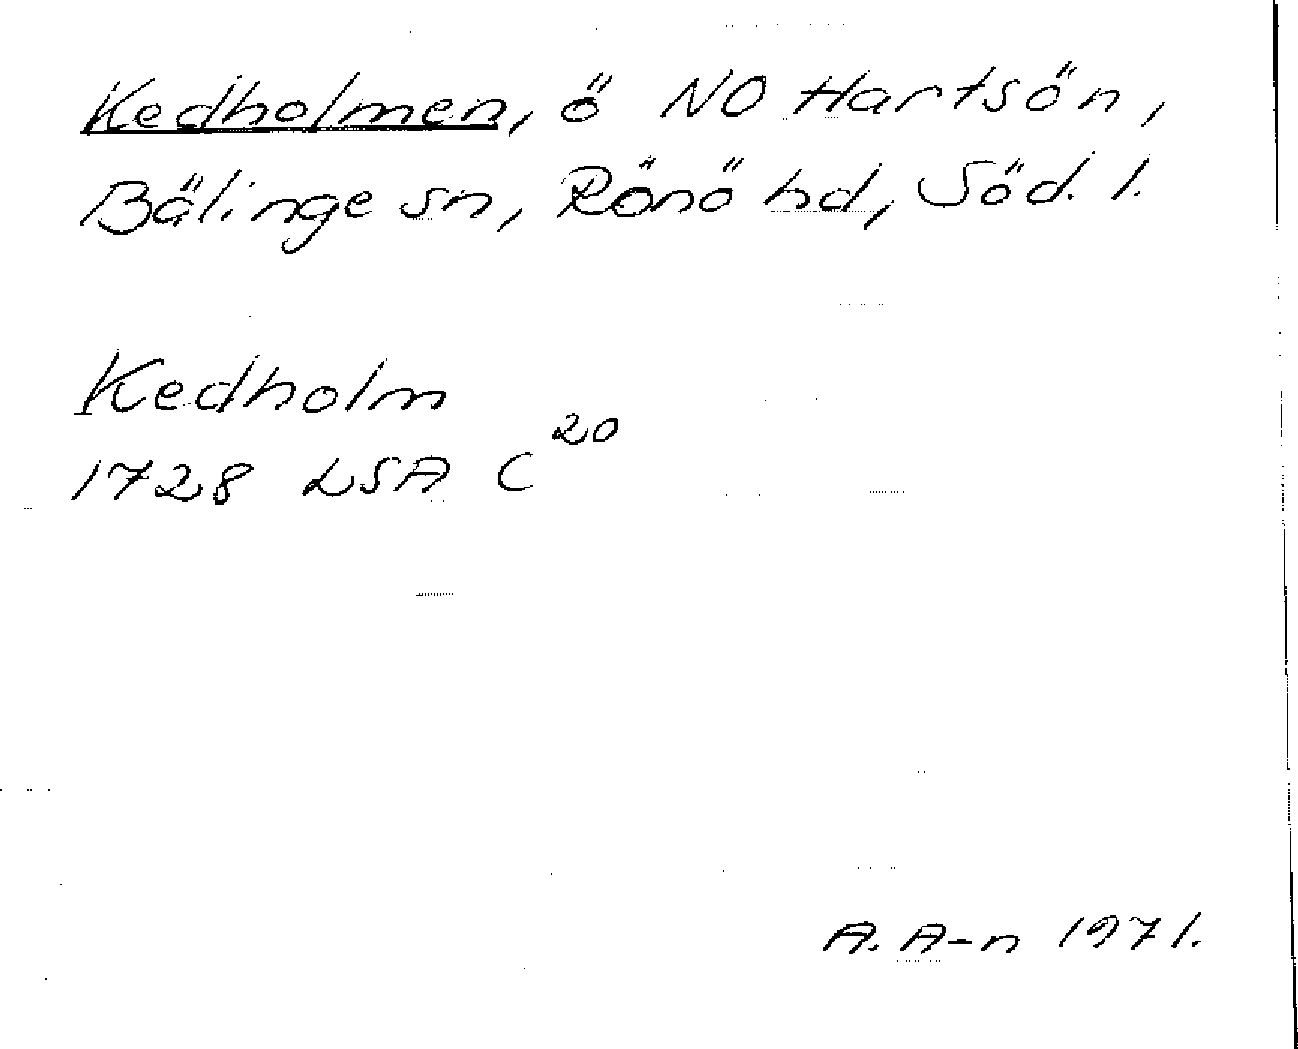 Kedholmen, ö NO Hartsön,
Bälinge sn, Rönö hd, Söd. l.
Kedholm
1728 LSA C 20
A. A-n 1971.